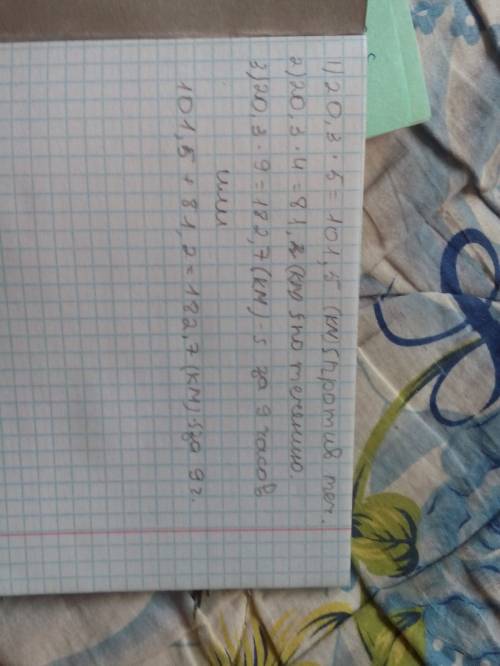 1) 20,3 · 5 = 101,5 (км) S против теч.
2) 20,3 · 4 = 81,2 (км) S по течению.
3) 20,3 · 9 = 182,7 (км) - S за 9 часов
или
101,5 + 81,2 = 182,7 (км) S за 9 ч.